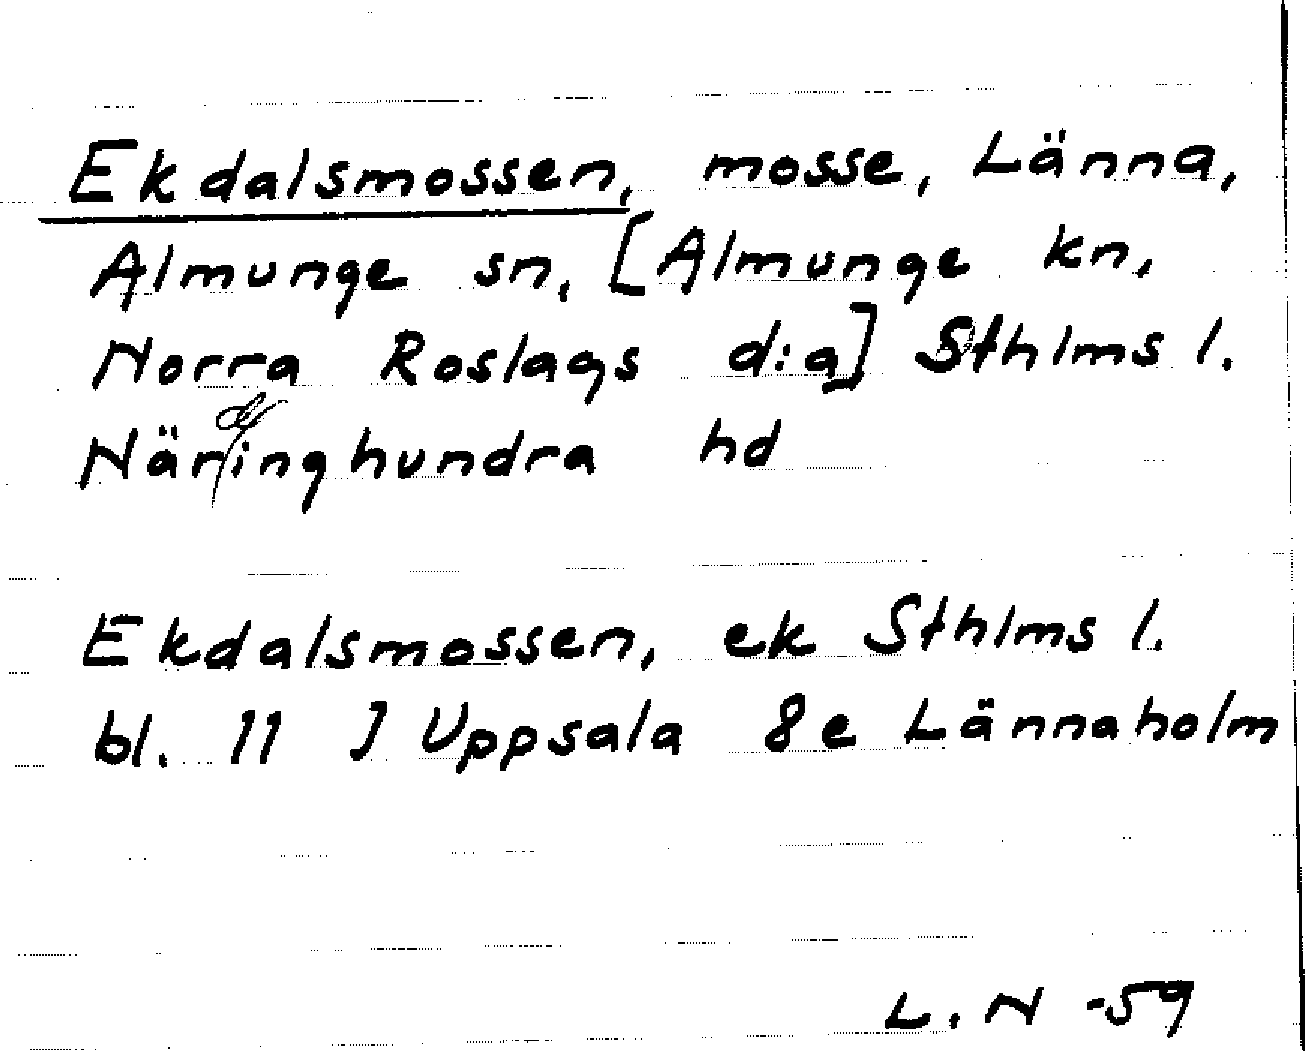 Ekdalsmossen, mosse, Länna,
Almunge sn, [Almunge kn,
Norra Roslags d:a] Sthlms l.
Närdinghundra hd
Ekdalsmossen, ek Sthlms l.
bl. 11 J Uppsala 8e Lännaholm
L. N -59